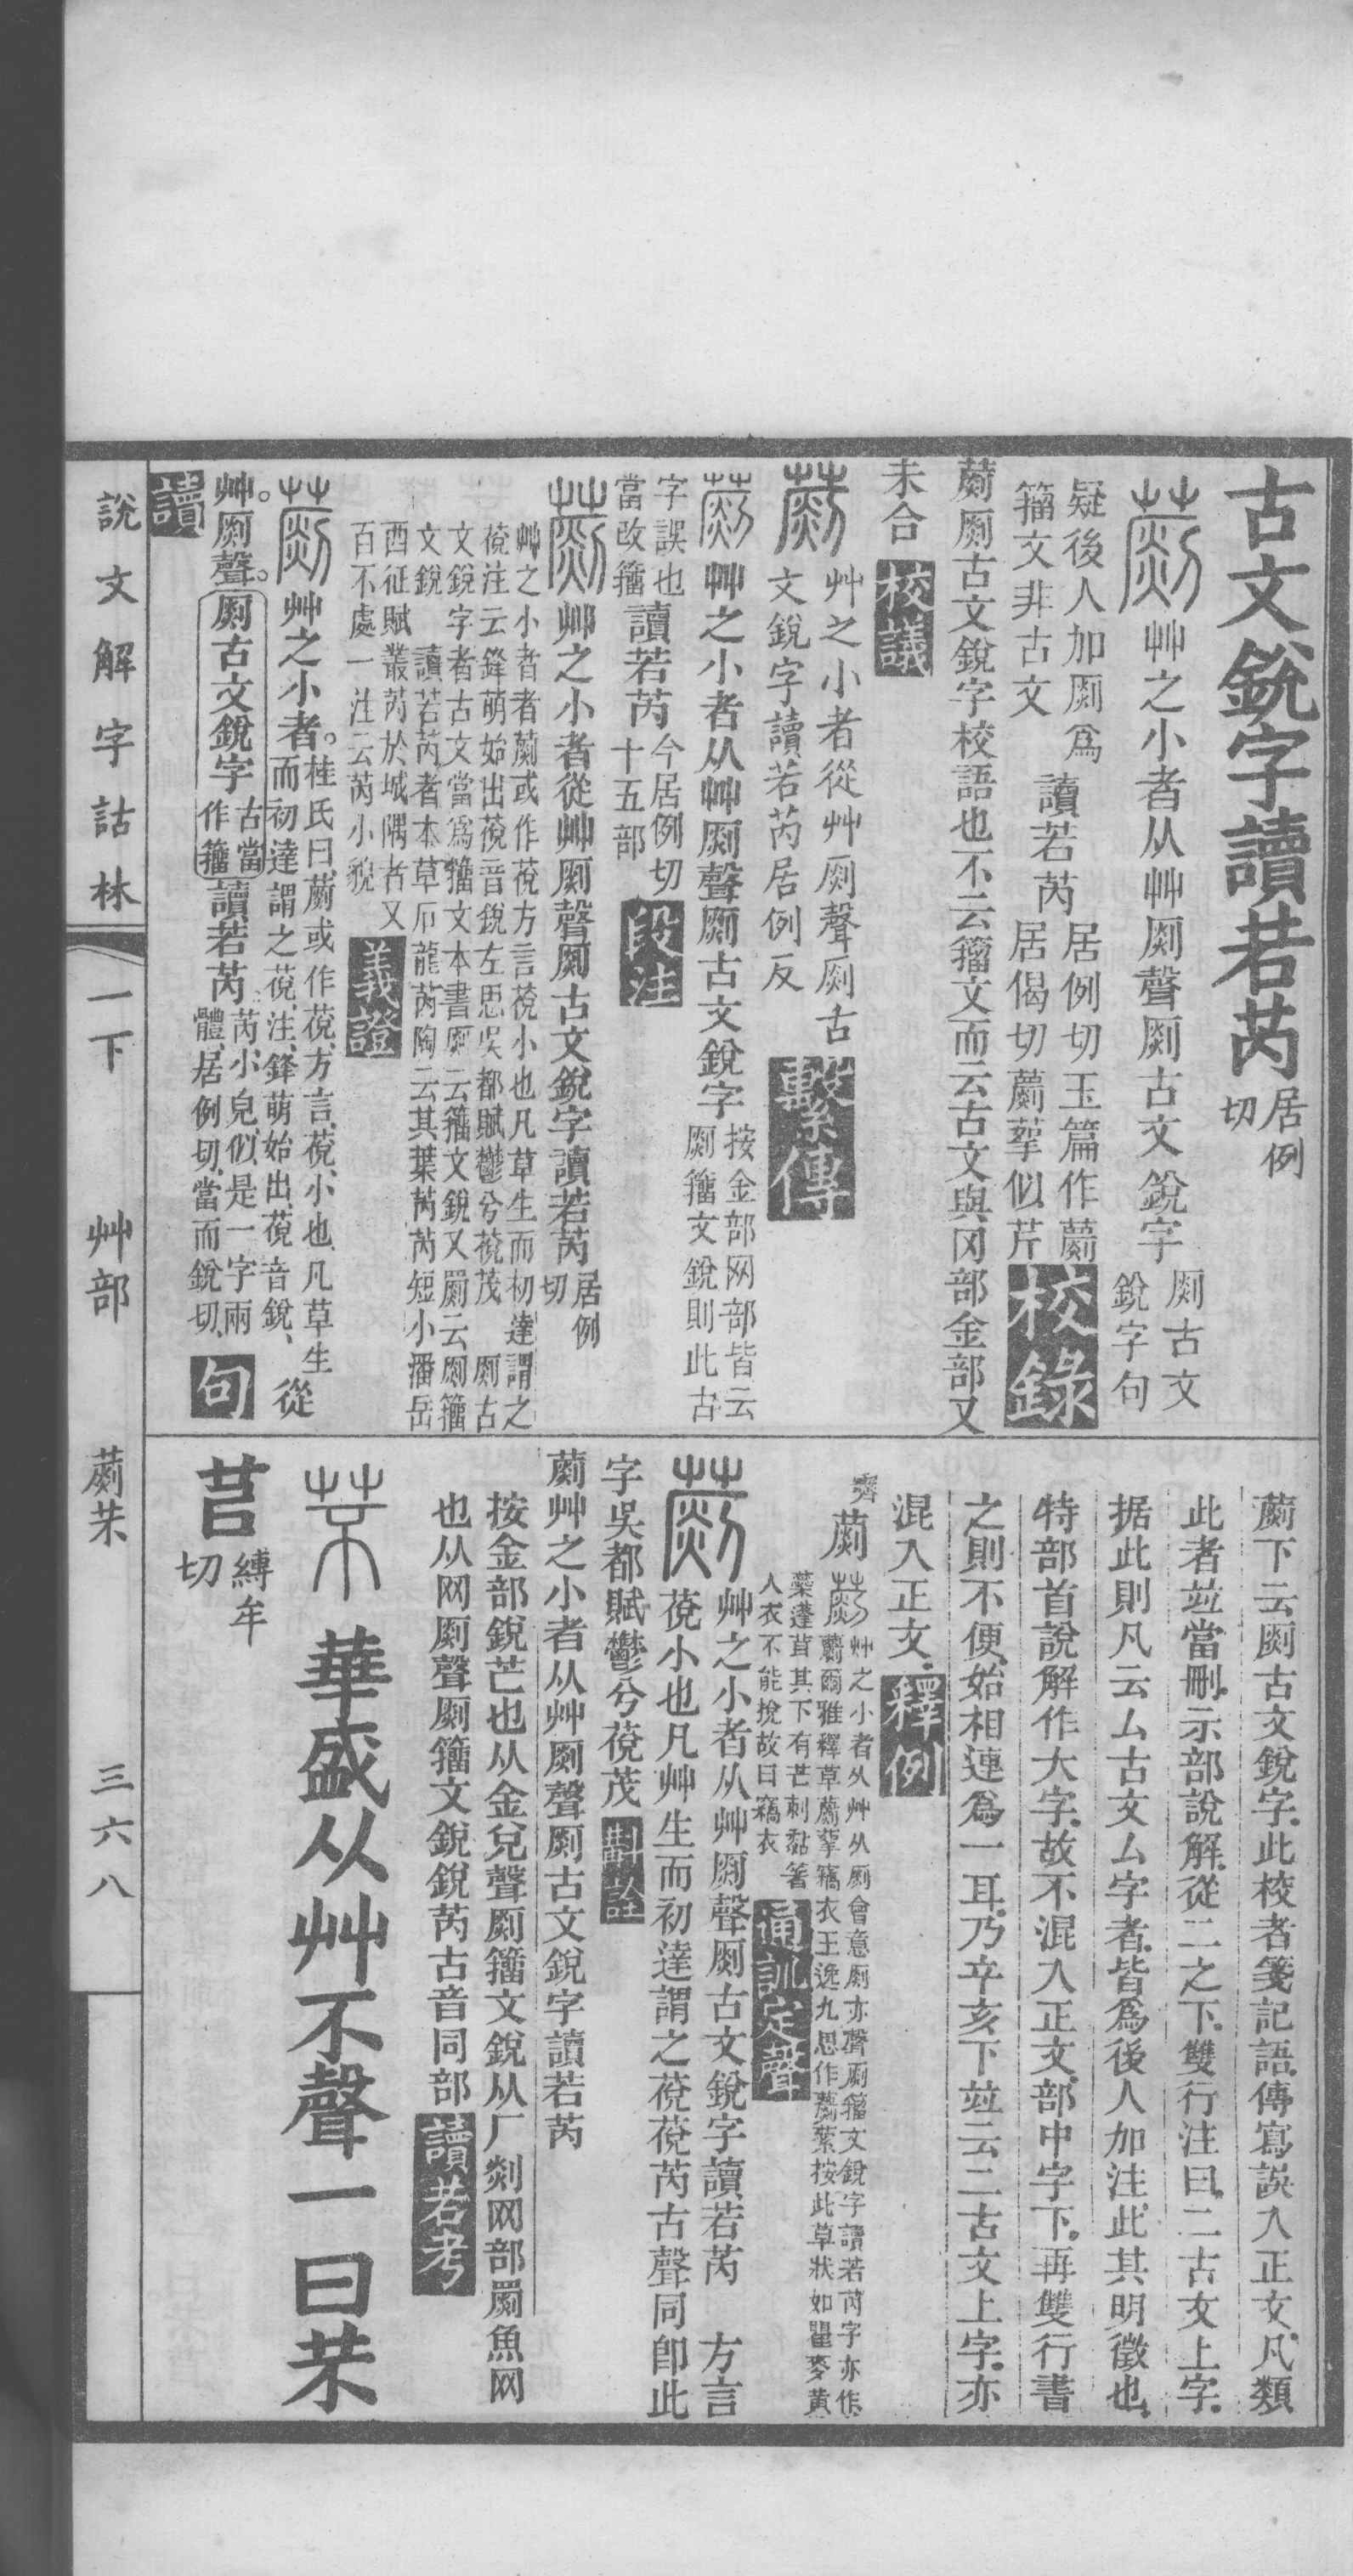 古文銳字讀若芮居例切
𦿔艸之小者从艸𠛱聲𠛱古文銳字𠛱古文銳字句
疑後人加𠛱爲籒文非古文讀若芮居例切玉篇作𦿔居偈切𦿔䓶似芹校錄
𦿔𠛱古文銳字校語也不云籒文而云古文與网部金部又
未合校議
艸之小者從艸𠛱聲𠛱古文銳字讀若芮居例反繫傳
艸之小者从艸𠛱聲𠛱古文銳字按金部网部皆云𠛱籒文銳則此古
字誤也當改籒讀若芮今居例切十五部段注
艸之小者從艸𠛱聲𠛱古文銳字讀若芮居例切
艸之小者者𦿔或作莌方言莌小也凡草生而初達謂之
莌注云鋒萌始出莌音銳左思吳都賦鬱兮莌茂 𠛱古
文銳字者古文當爲籒文本書𠛱云籒文銳又罽云𠛱籒
文銳 讀若芮者本草卮龍芮陶云其葉芮芮短小潘岳
西征賦叢芮於城隅者又
百不處一注云芮小貌義證
艸之小者。桂氏曰𦿔或作莌、方言、莌、小也、凡草生而初達謂之莌、注、鋒萌始出、莌音銳、從
艸。𠛱聲。𠛱古文銳字古當作籒讀若芮芮、小皃、似是一字兩體、居例切、當而銳切、句
讀
𦿔下云𠛱古文銳字此校者箋記語傳寫誤入正文凡類
此者竝當刪示部說解從二之下雙行注曰二古文上字
据此則凡云厶古文厶字者皆爲後人加注此其明徵也
特部首說解作大字故不混入正文部中字下再雙行書
之則不便始相連爲一耳乃辛亥下竝云二古文上字亦
混入正文釋例
艸之小者从艸从𠛱會意𠛱亦聲𠛱籒文銳字讀若芮字亦作
爾雅釋草𦿔䓶竊衣王逸九思作𦿔蘂按此草狀如瞿麥黃
蘂蓬茸其下有芒刺黏著
人衣不能挩故曰竊衣通訓定聲
艸之小者从艸𠛱聲𠛱古文銳字讀若芮 方言
莌小也凡艸生而初達謂之莌莌芮古聲同卽此
字吳都賦鬱兮莌茂斠詮
𦿔艸之小者从艸𠛱聲𠛱古文銳字讀若芮
按金部銳芒也从金兌聲𠛱籒文銳从厂剡网部罽魚网
也从网𠛱聲𠛱籒文銳銳芮古音同部讀若考
芣華盛从艸不聲一曰芣
苢縛牟切
說文解字詁林 一下 艸部 𦿔芣 三六八